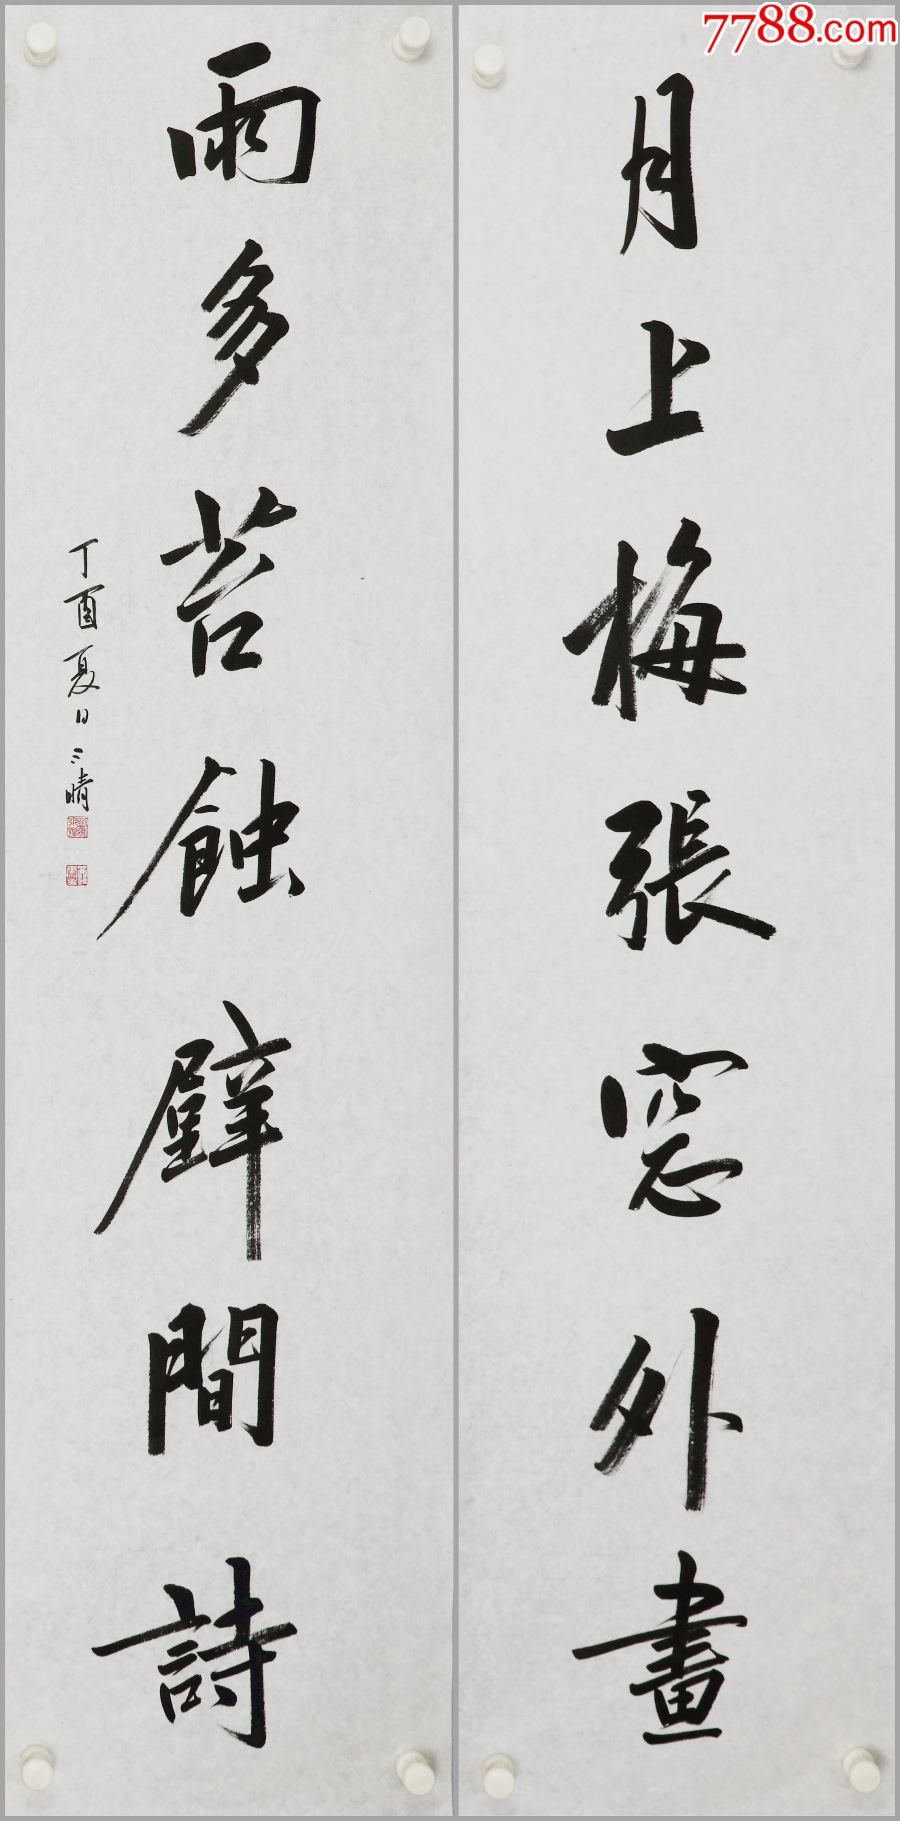 7788.com
月上梅張窓外畫
雨多苔蝕壁間詩
丁酉夏日晴